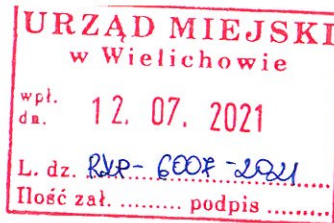 URZĄD MIEJSKI
w Wielichowie
wpł.
dn. 12. 07. 2021
L. dz. RKP- 6007 -2021
Ilość zał. ......... podpis .........